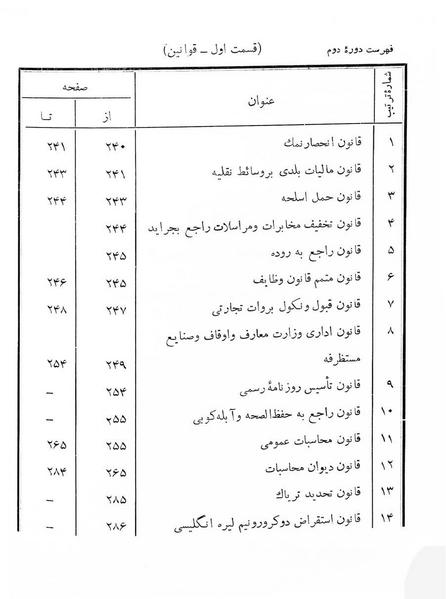 فهرست دورهٔ دوم (قسمت اول ـ قوانین)
شمارهٔ ترتیب عنوان صفحه
از تا
۱ قانون انحصارنمك ۲۴۰ ۲۴۱
۲ قانون مالیات بلدی بروسائط نقلیه ۲۴۱ ۲۴۳
۳ قانون حمل اسلحه ۲۴۳ ۲۴۴
۴ قانون تخفیف مخابرات ومراسلات راجع بجراید ۲۴۴
۵ قانون راجع به روده ۲۴۵
۶ قانون متمم قانون وظایف ۲۴۵ ۲۴۶
۷ قانون قبول ونکول بروات تجارتی ۲۴۷ ۲۴۸
۸ قانون اداری وزارت معارف واوقاف وصنایع
مستظرفه ۲۴۹ ۲۵۴
۹ قانون تأسیس روزنامهٔ رسمی ۲۵۴ –
۱۰ قانون راجع به حفظ‌الصحه وآبله‌کوبی ۲۵۵ –
۱۱ قانون محاسبات عمومی ۲۵۵ ۲۶۵
۱۲ قانون دیوان محاسبات ۲۶۵ ۲۸۴
۱۳ قانون تحدید تریاك ۲۸۵ –
۱۴ قانون استقراض دوکرورونیم لیره انگلیسی ۲۸۶ –